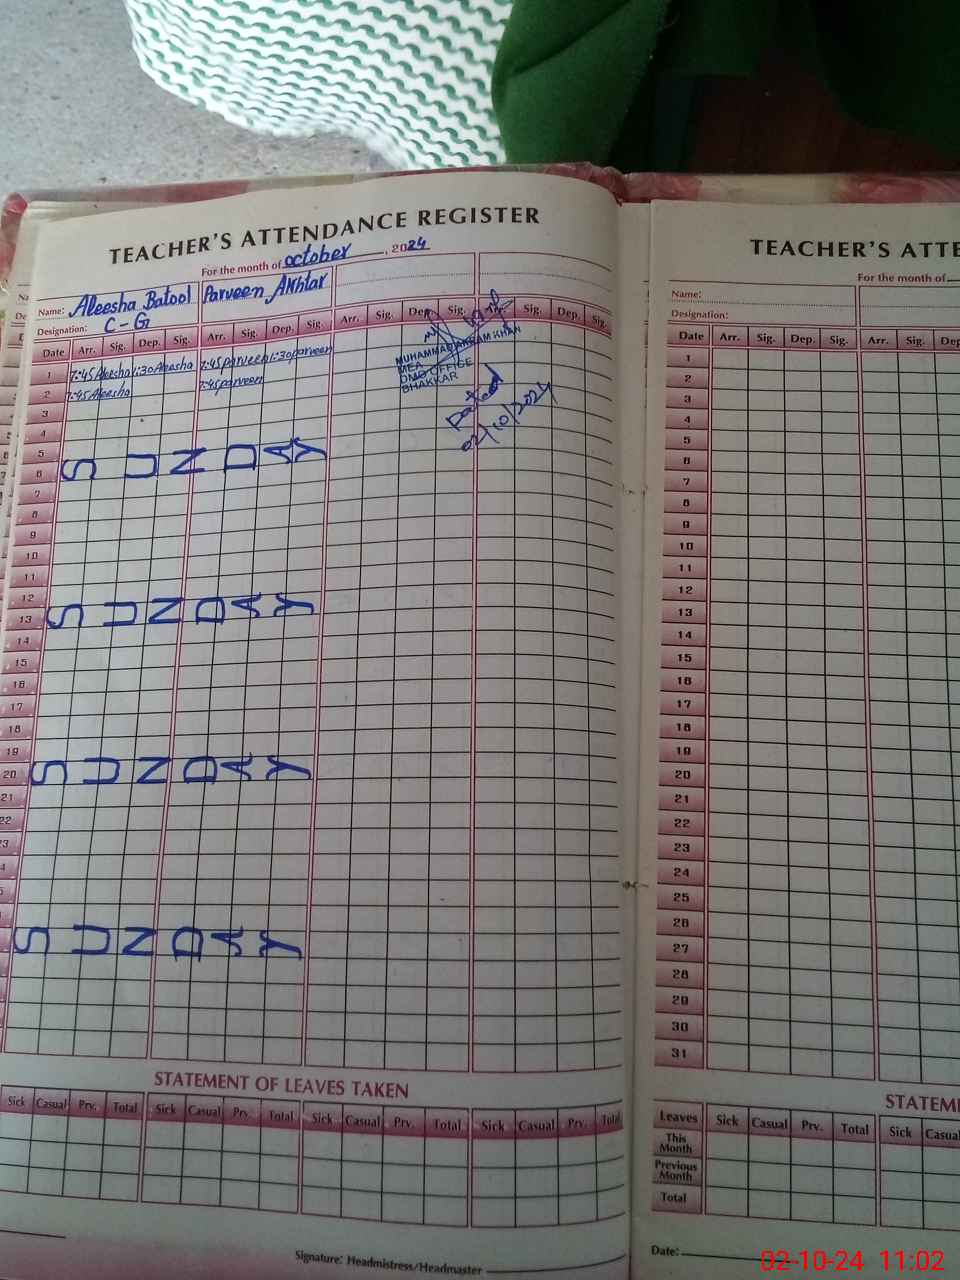 TEACHER'S ATTENDANCE REGISTER
For the month of october, 2024
Name: Aleesha Batool Parveen Akhtar
Designation: C-G
Date Arr. Sig. Dep. Sig. Arr. Sig. Dep. Sig. Arr. Sig. Dep. Sig. Sig. Dep. Sig.
1 7:45 Aleesha 1:30 Aleesha 7:45 parveen 1:30 parveen
2 7:45 Aleesha 7:45 parveen
MUHAMMAD AKRAM KHAN
MEA
DMO OFFICE
BHAKKAR
02/10/2024
3
4
5
6 SUNDAY
7
8
9
10
11
12
13 SUNDAY
14
15
16
17
18
19
20 SUNDAY
21
22
23
SUNDAY
STATEMENT OF LEAVES TAKEN
Sick Casual Prv. Total Sick Casual Prv. Total Sick Casual Prv. Total Sick Casual Prv. Total
Signature: Headmistress/Headmaster
TEACHER'S ATTE
For the month of
Name:
Designation:
Date Arr. Sig. Dep. Sig. Arr. Sig. Dep
1
2
3
4
5
6
7
8
9
10
11
12
13
14
15
16
17
18
19
20
21
22
23
24
25
26
27
28
29
30
31
STATEM
Leaves Sick Casual Prv. Total Sick Casua
This Month
Previous Month
Total
Date:
02-10-24 11:02